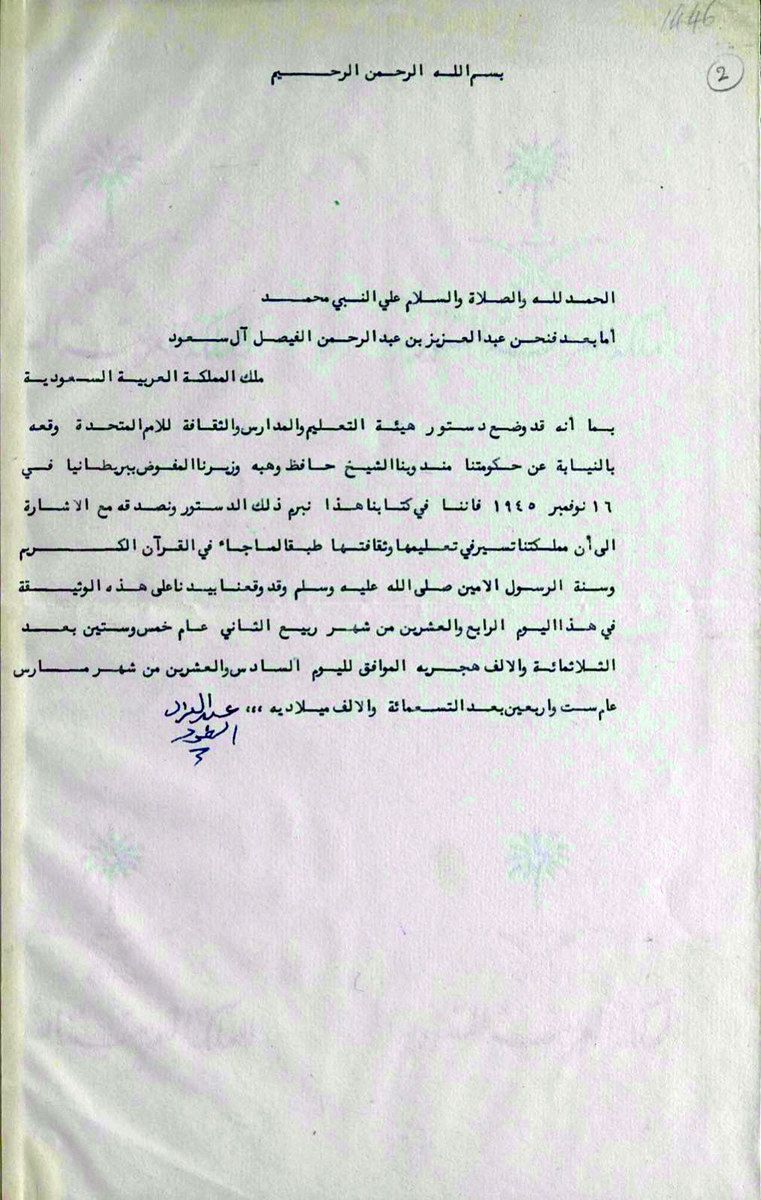 1446
2
بسم الله الرحمن الرحيم
الحمد لله والصلاة والسلام علي النبي محمد
أما بعد فنحن عبد العزيز بن عبد الرحمن الفيصل آل سعود
ملك المملكة العربية السعودية
بما أنه قد وضع دستور هيئة التعليم والمدارس والثقافة للامم المتحدة وقعه
بالنيابة عن حكومتنا مندوبنا الشيخ حافظ وهبه وزيرنا المفوض ببريطانيا في
١٦ نوفمبر ١٩٤٥ فاننا في كتابنا هذا نبرم ذلك الدستور ونصدقه مع الاشارة
الى أن مملكتنا تسير في تعليمها وثقافتها طبقا لما جاء في القرآن الكريم
وسنة الرسول الامين صلى الله عليه وسلم وقد وقعنا بيدنا على هذه الوثيقة
في هذا اليوم الرابع والعشرين من شهر ربيع الثاني عام خمس وستين بعد
الثلاثمائة والالف هجريه الموافق لليوم السادس والعشرين من شهر مارس
عام ست واربعين بعد التسعمائة والالف ميلاديه ،،،
عبد العزيز
السعود